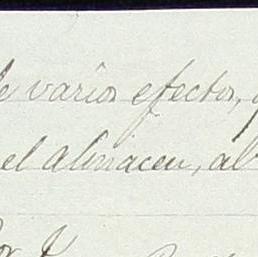 de varios efectos,
el almacen, al